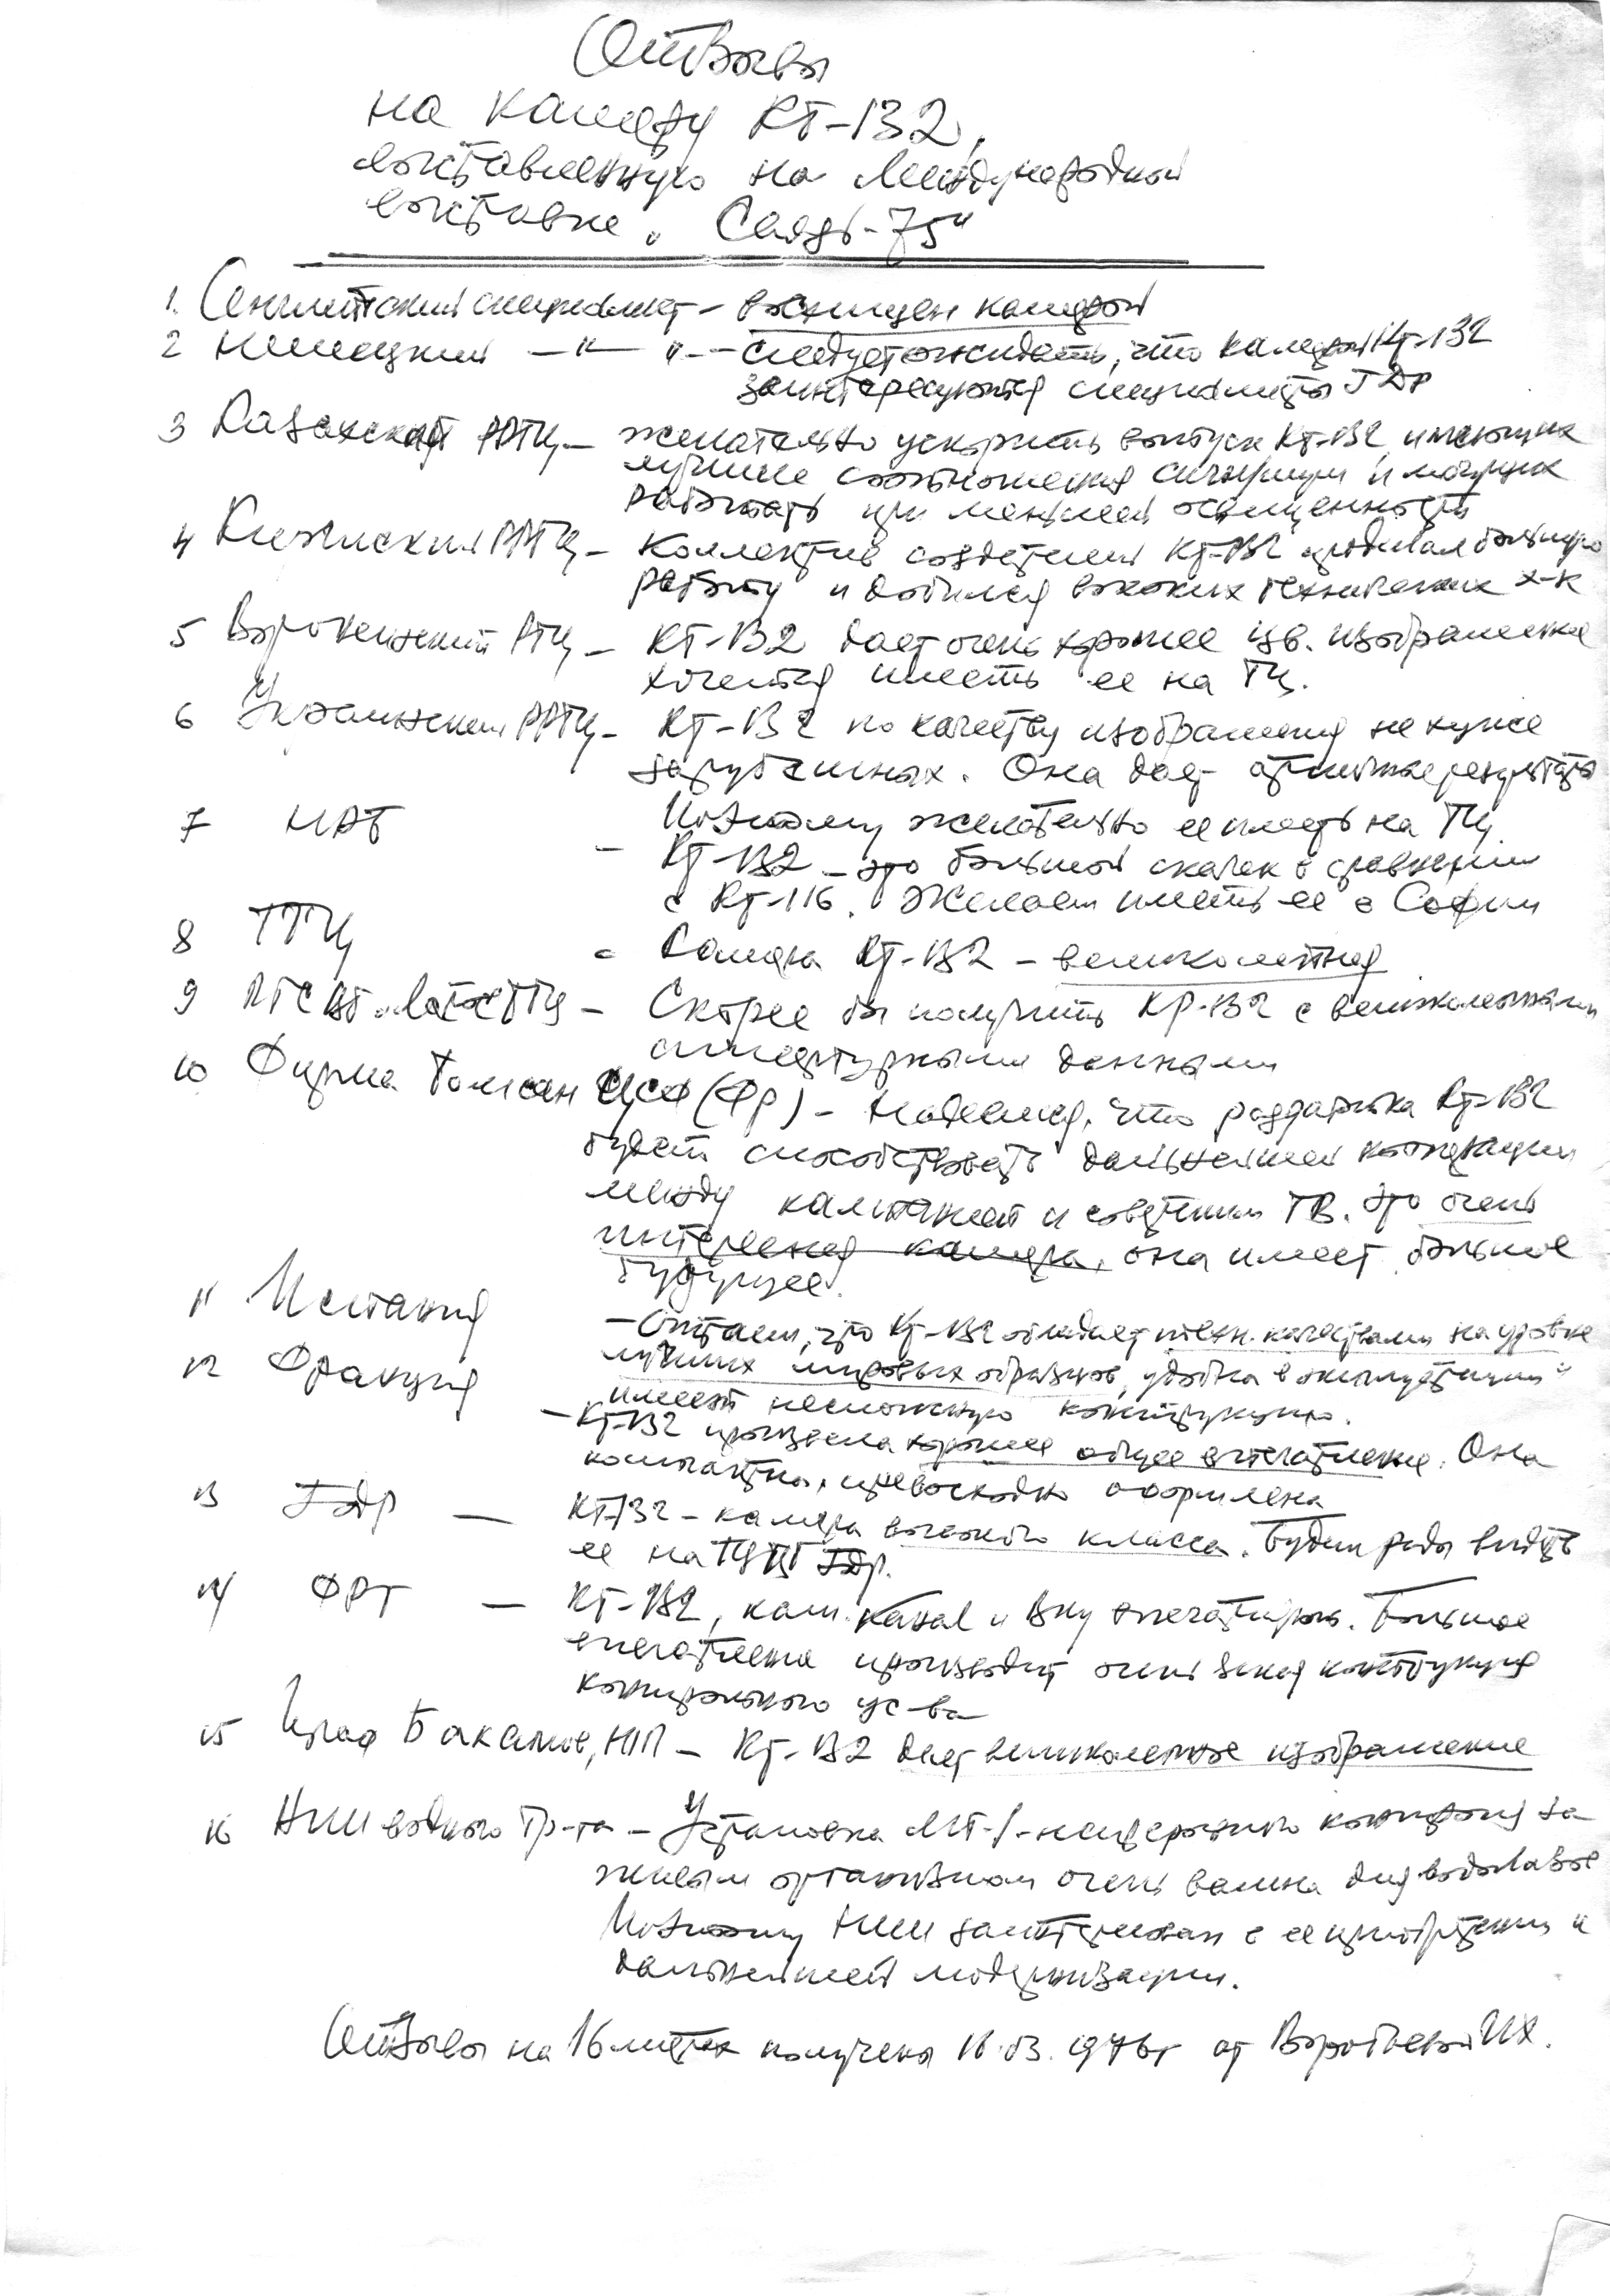 Отзывы
на камеру КТ-132,
выставленную на Международной
выставке „Связь-75"
1. Английский специалист – восхищен камерой
2 Немецкий –"– "-– следует ожидать, что камерой КТ-132
заинтересуются специалисты ГДР
3 Казахский РРТЦ – желательно ускорить выпуск КТ-132, имеющих
лучшие соотношения сигн/шум и могущих
работать при меньшей освещенности
4 РРТЦ – Коллектив создателей КТ-132 проделал большую
работу и добился высоких технических х-к
5 Воронежский РТЦ – КТ-132 дает очень хорошее цв. изображение
хочется иметь ее на ТЦ.
6 Украинский РРТЦ – КТ-132 по качеству изображения не хуже
зарубежных. Она дает отличные результаты
Поэтому желательно ее иметь на ТЦ
7 НРБ – КТ-132 – это большой скачек в сравнении
с КТ-116. Желаем иметь ее в Софии
8 ТТЦ – Камера КТ-132 – великолепная
9 ТТЦ – Скорее бы получить КТ-132 с великолепными
аппаратурными данными
10 Фирма Томсон ЦСФ (Фр) – Надеемся, что разработка КТ-132
будет способствовать дальнейшей кооперации
между компанией и советским ТВ. Это очень
интересная камера, она имеет большое
будущее.
11 Испания – Считаем, что КТ-132 обладает техн. качествами на уровне
лучших мировых образцов, удобна в эксплуатации и
имеет несложную конструкцию.
12 Франция – КТ-132 произвела хорошее общее впечатление. Она
компактна, превосходно оформлена
13 ГДР – КТ-132 – камера высокого класса. Будем рады видеть
ее на ТЦ ГДР.
14 ФРГ – КТ-132, кам. канал и ВКУ впечатляющи. Большое
впечатление производит очень ясная конструкция
контрольного ус-ва
15 Бакалов, НРБ – КТ-132 дает великолепное изображение
16 НИИ водного тр-та – Установка МТ-1 – контроля за
живым организмом очень важна для водолазов
Поэтому НИИ заинтересован в ее приобретении и
дальнейшей модернизации.
Отзывы на 16 листах получены 16.03.1976г от Воробьевой И.Х.